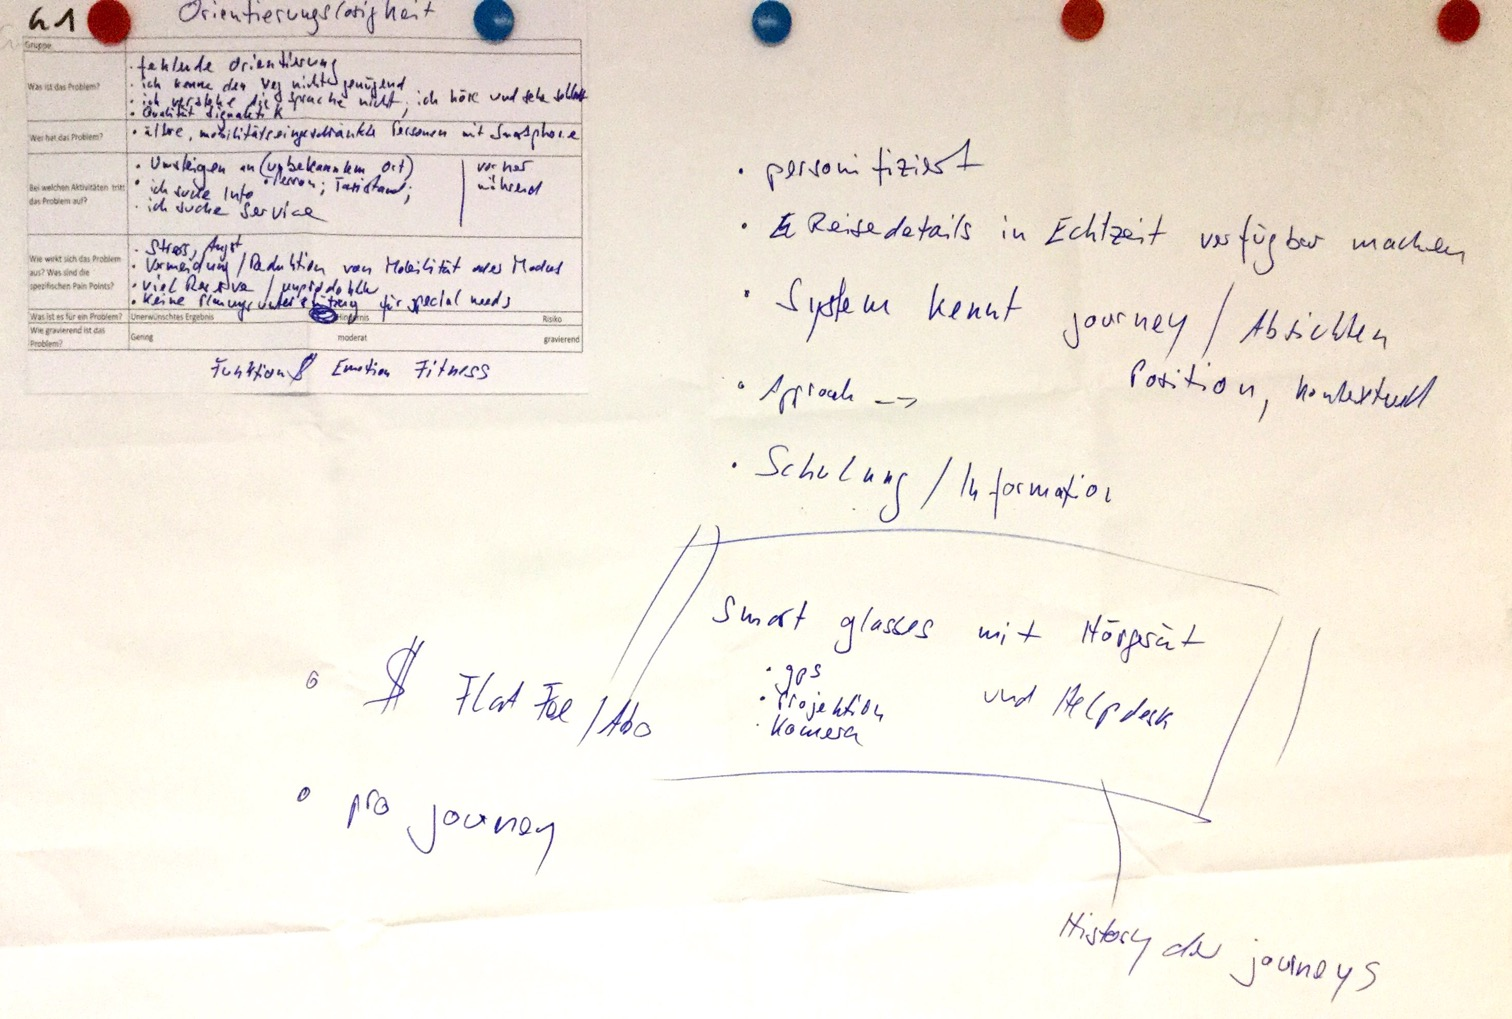 G1 Orientierungslosigkeit
Gruppe
Was ist das Problem?
· fehlende Orientierung
· ich kenne den Weg nicht genügend
· ich verstehe die Sprache nicht, ich höre und sehe schlecht
· Qualität Signaletik
Wer hat das Problem?
· ältere, mobilitätseingeschränkte Personen mit Smartphone
Bei welchen Aktivitäten tritt
das Problem auf?
· Umsteigen an (unbekanntem Ort)
· ich suche Info · Person; Taxistand;
· ich suche Service
vorher
während
Wie wirkt sich das Problem
aus? Was sind die
spezifischen Pain Points?
· Stress, Angst
· Vermeidung / Reduktion von Mobilität oder Modus
· viel Reserve /
· Keine Planungsunterstützung für special needs
Was ist es für ein Problem? Unerwünschtes Ergebnis Hindernis Risiko
Wie gravierend ist das
Problem?
Gering moderat gravierend
Funktion $ Emotion Fitness
· personifiziert
· Reisedetails in Echtzeit verfügbar machen
· System kennt journey / Absichten
Position, kontextuell
· Approach -->
· Schulung / Information
Smart glasses mit Hörgerät
· gps
· Projektion
· Kamera
und Helpdesk
° $ Flat Fee / Abo
° pro journey
History der journeys